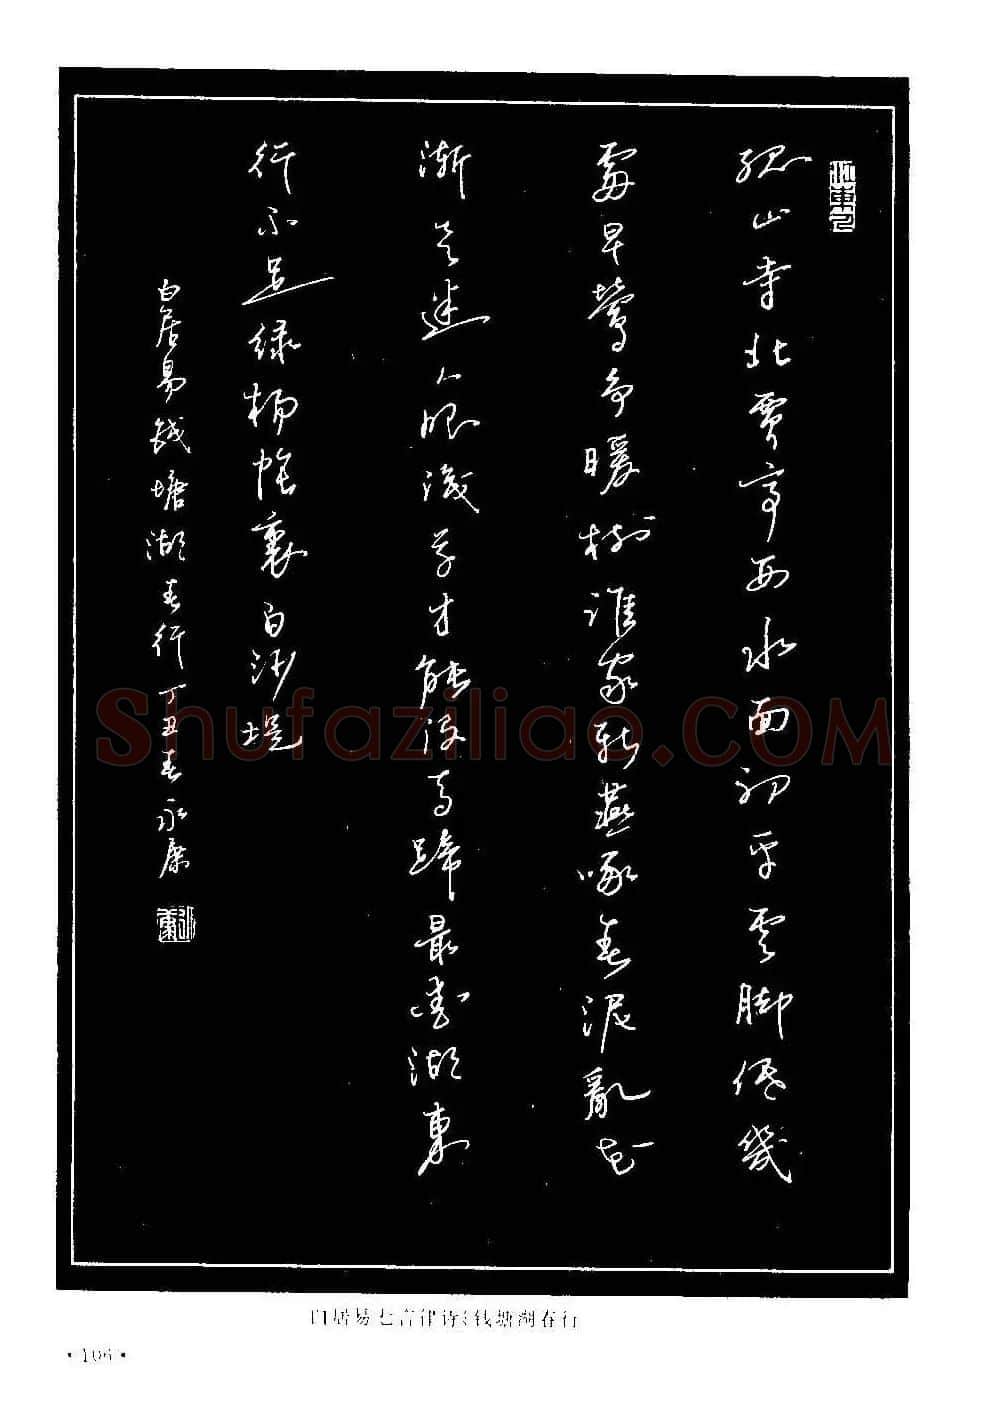 孤山寺北賈亭西水面初平雲脚低幾
處早鶯争暖樹誰家新燕啄春泥亂花
漸欲迷人眼淺草才能没馬蹄最愛湖東
行不足緑楊陰裏白沙堤
白居易錢塘湖春行丁丑春永康
Shufaziliao.COM
白居易七言律诗:钱塘湖春行
·106·